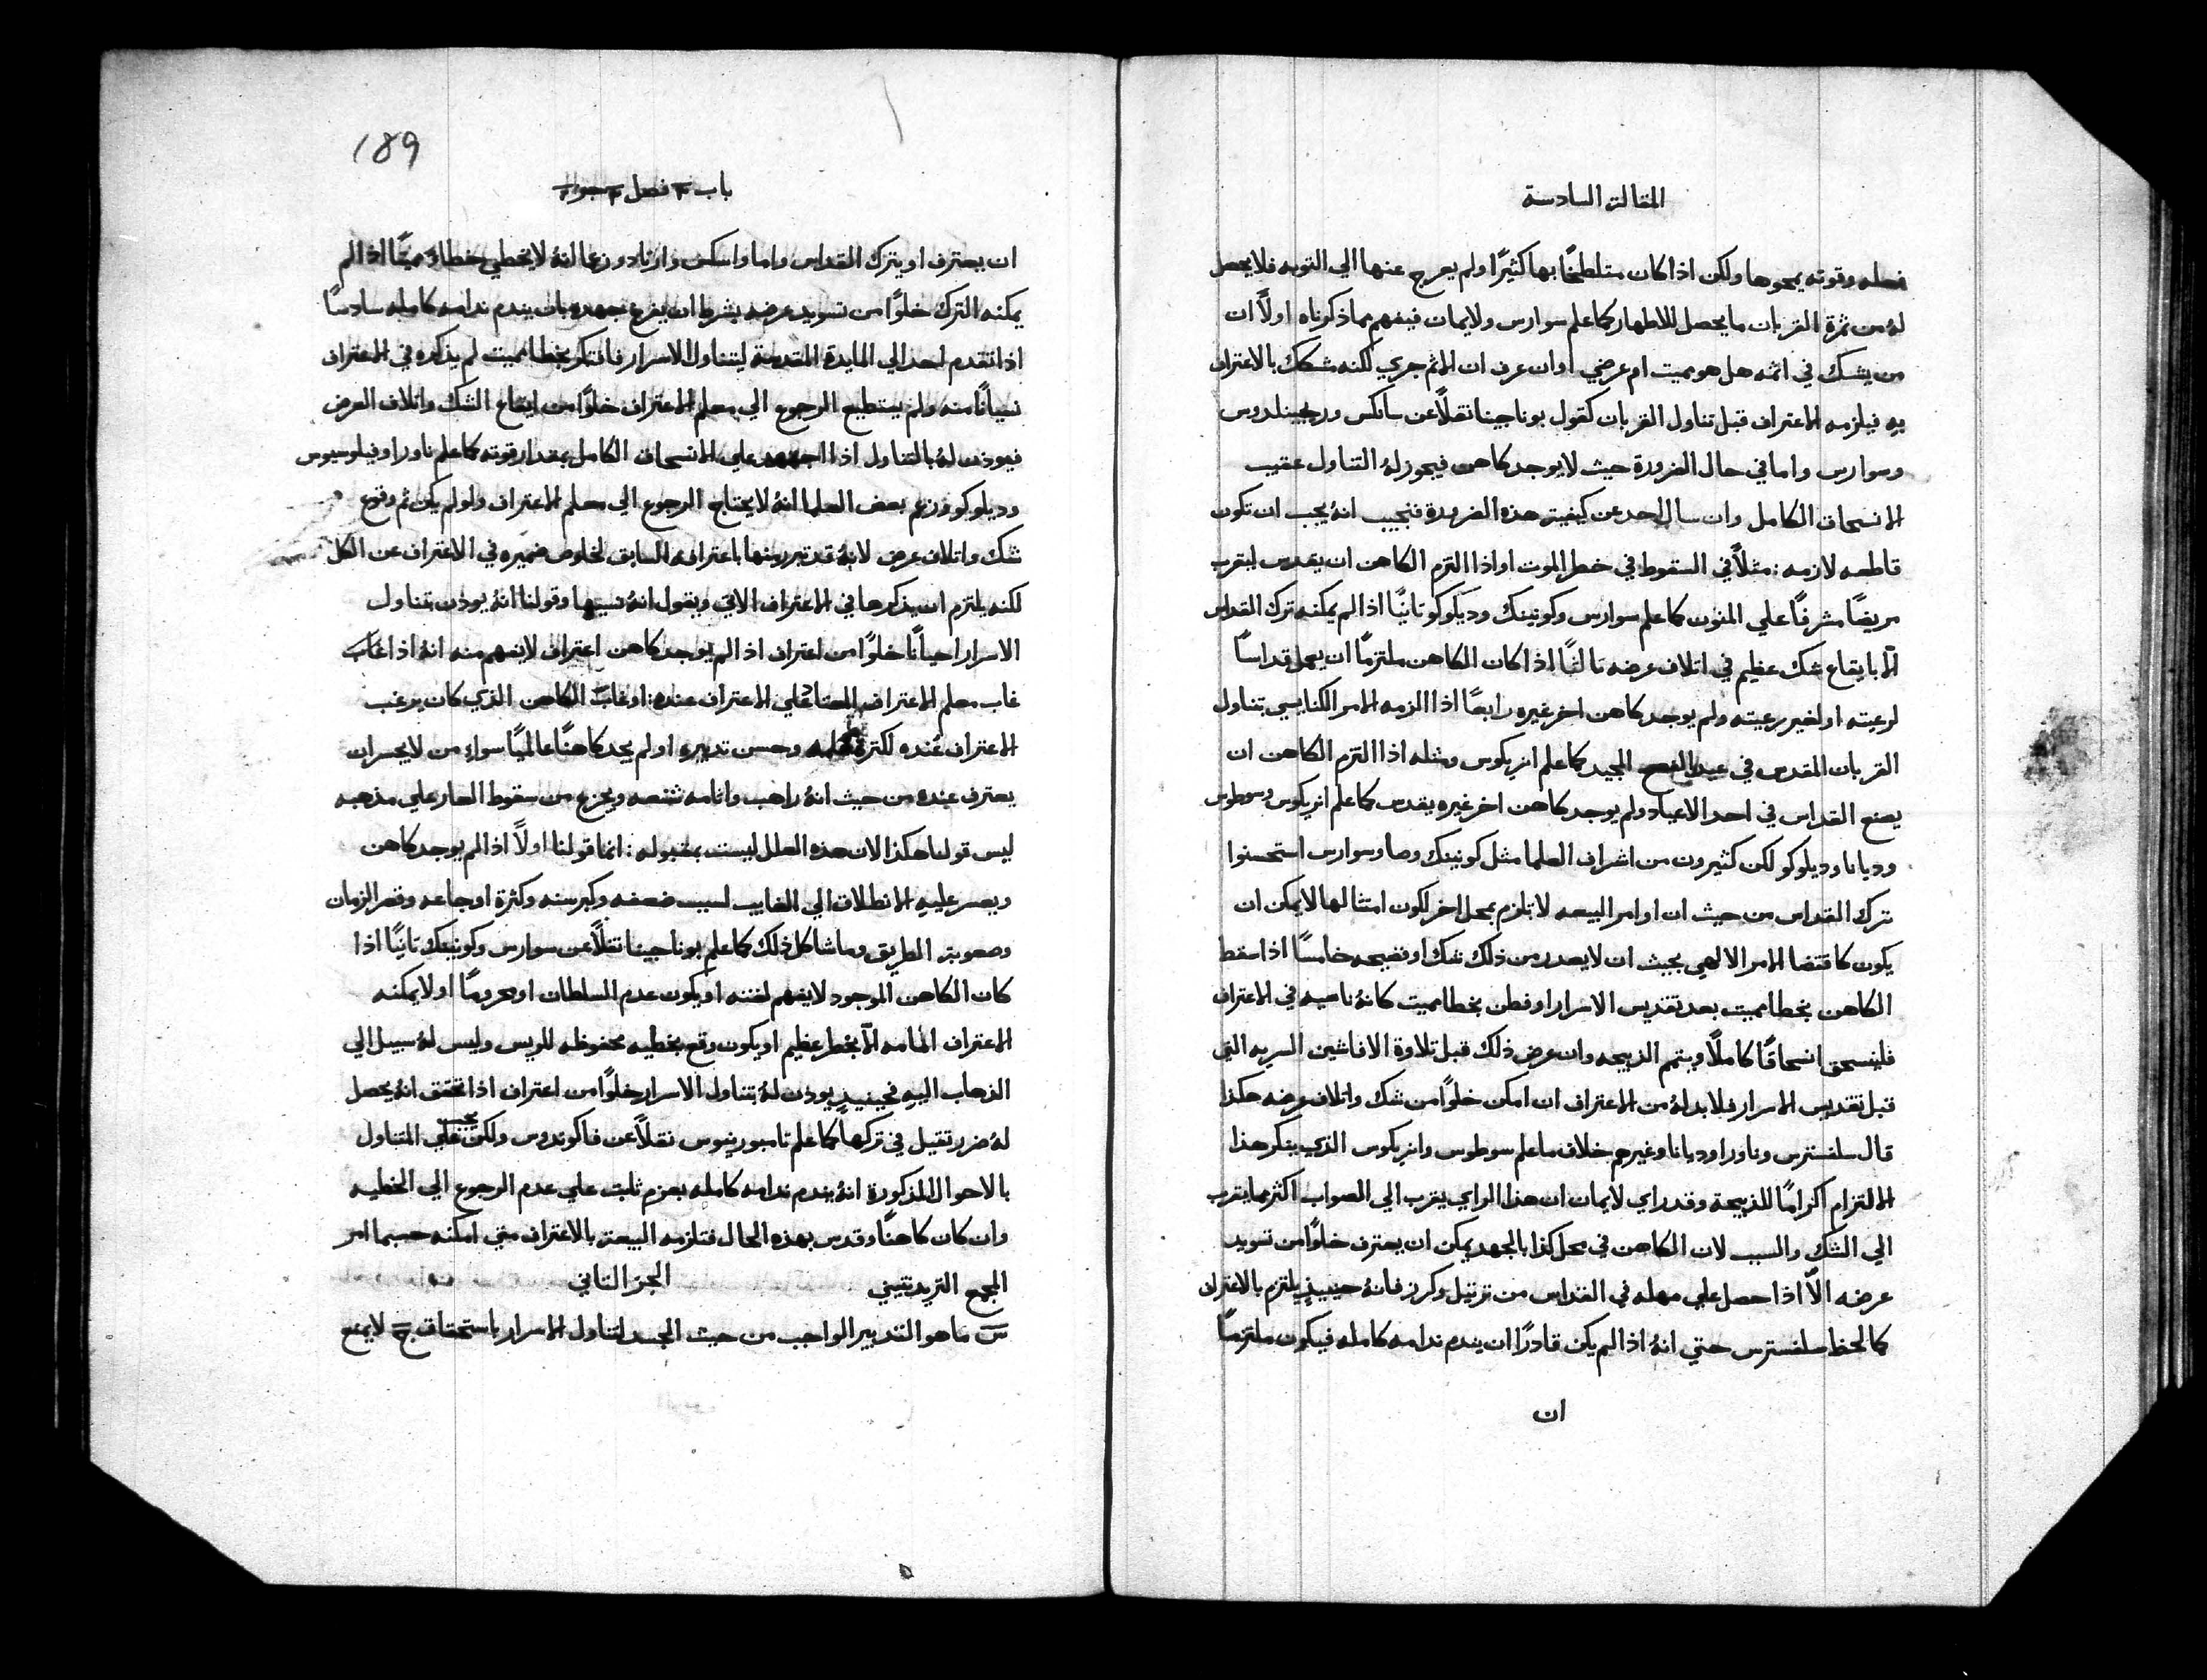 المقالة السادسة
فعله وقوته يمحوها ولكن اذا كان متلطخًا بها كثيرًا ولم يعرج عنها الي التوبه فلا يحصل
لهُ من ثمرة القربان ما يحصل للاطهار كما علم سوارس ولايمان فيفهم مما ذكرناه اولًا ان
من يشك في اثمه هل هو مميت ام عرضي اوان عرف ان الاثم جري لكنه متشكك بالاعتراف
به فيلزمه الاعتراف قبل تناول القربان كقول بوناجينا نقلًا عن سانكس ورجينلدوس
وسوارس واما في حال الضرورة حيث لا يوجد كاهن فيجوز لهُ التناول عقيب
الانسحاق الكامل وان سال احد عن كيفية هذه الضرورة فنجيب انهُ يجب ان تكون
قاطعه لازمه: مثلًا في السقوط في خطر الموت او اذا التزم الكاهن ان يقدس ليقرب
مريضًا مشرفًا علي المنون كما علم سوارس وكونينك وديلوكو ثانيًا اذا لم يمكنه ترك القداس
الّا بايقاع شك عظيم في اتلاف عرضه ثالثًا اذا كان الكاهن ملتزمًا ان يعمل قداسًا
لرعيته او لغير رعيته ولم يوجد كاهن اخر غيره رابعًا اذا الزمه الامر الكنايسي بتناول
القربان المقدس في عيد الفصح المجيد كما علم انريكوس ومثله اذا التزم الكاهن ان
يصنع القداس في احد الاعياد ولم يوجد كاهن اخر غيره يقدس كما علم انريكوس وسوطوس
وديانا وديلوكو لكن كثيرون من اشراف العلما مثل كونينك وصا وسوارس استحسنوا
ترك القداس من حيث ان اوامر البيعه لا تلزم بمحل اخر لكون امتثالها لا يمكن ان
يكون كاقتضا الامر الالهي بحيث ان لا يصدر من ذلك شك او فضيحه خامسًا اذا سقط
الكاهن بخطا مميت بعد تقديس الاسرار او فطن بخطا مميت كانهُ ناسيه في الاعتراف
فلينسحق انسحاقًا كاملًا ويتم الذبيحه وان عرض ذلك قبل تلاوة الافاشين السريه التي
قبل تقديس الاسرار فلا بد لهُ من الاعتراف ان امكن خلوًا من شك واتلاف عرضه هكذا
قال سلفسترس وناورا وديانا وغيرهم خلاف ما علم سوطوس وانريكوس الذي ينكر هذا
الالتزام اكرامًا للذبيحة وقد راي لايمان ان هذا الراي يقرب الي الصواب اكثر مما يقرب
الي الشك والسبب لان الكاهن في محل كذا بالجهد يمكن ان يعترف خلوًا من تسويد
عرضه الّا اذا حصل علي مهله في القداس من ترتيل وكرز فانهُ حينيذٍ يلتزم بالاعتراف
كما لحظ سلفسترس حتي انهُ اذا لم يكن قادرًا ان يندم ندامه كامله فيكون ملتزمًا
ان
189
باب فصل جواب
ان يعترف او يترك القداس واما واسكس وارناد وزعما انهُ لا يخطي خطاءً مميتًا اذا لم
يمكنه الترك خلوًا من تسويد عرضه بشرط ان يفرغ جهده بان يندم ندامه كامله سادسًا
اذا تقدم احد الي المايدة المقدسة ليتناول الاسرار فافتكر بخطا مميت لم يذكره في الاعتراف
نسيانًا منه ولم يستطيع الرجوع الي معلم الاعتراف خلوًا من ايقاع الشك واتلاف العرض
فيوذن لهُ بالتناول اذا اجتهد علي الانسحاق الكامل بمقدار قوته كما علم ناورا وفيلوسيوس
وديلوكو وزعم بعض العلما انهُ لا يحتاج الرجوع الي معلم الاعتراف ولو لم يكن ثم وقوع
شك واتلاف عرض لانهُ قد تبرر منها باعترافه السابق لخلوص ضميره في الاعتراف عن الكل
لكنه يلتزم ان يذكرها في الاعتراف الاتي ويقول انهُ نسيها وقولنا انهُ يوذن بتناول
الاسرار احيانًا خلوًا من اعتراف اذ الم يوجد كاهن اعتراف لا يفهم منه انهُ اذا غاب
غاب معلم الاعتراف المعتاد علي الاعتراف عنده: او غاب الكاهن الذي كان يرغب
الاعتراف عنده لكثرة علمه وحسن تدبيره او لم يجد كاهنًا عالميًا سواء من لا يجسر ان
يعترف عنده من حيث انهُ راهب واثامه شنعه ويجزع من سقوط العار علي مذهبه
ليس قولنا هكذا لان هذه العلل ليست بمقبوله: انما قولنا اولًا اذا لم يوجد كاهن
ويعسر عليه الانطلاق الي الغايب لسبب ضعفه وكبر سنه وكثرة اوجاعه وقصر الزمان
وصعوبة الطريق وما شاكل ذلك كما علم بوناجينا نقلًا عن سوارس وكونينك ثانيًا اذا
كان الكاهن الموجود لا يفهم لغته او يكون عدم السلطان او محرومًا او لا يمكنه
الاعتراف امامه الّا بخطر عظيم او يكون وقع بخطيه محفوظه للريس وليس لهُ سبيل الي
الذهاب اليه فحينيذٍ يوذن لهُ بتناول الاسرار خلوًا من اعتراف اذا تحقق انهُ يحصل
لهُ ضرر ثقيل في تركها كما علم تامبورينوس نقلًا عن فاكوندوس ولكن يجب علي المتناول
بالاحوال المذكورة انهُ يندم ندامه كامله بعزم ثابت علي عدم الرجوع الي الخطيه
وان كان كاهنًا وقدس بهذه الحال فتلزمه البيعة بالاعتراف متي امكنه حسبما امر
المجمع التريدنتيني الجز الثاني
س ما هو التدبير الواجب من حيث الجسد لتناول الاسرار باستحقاق ج لا يمنع